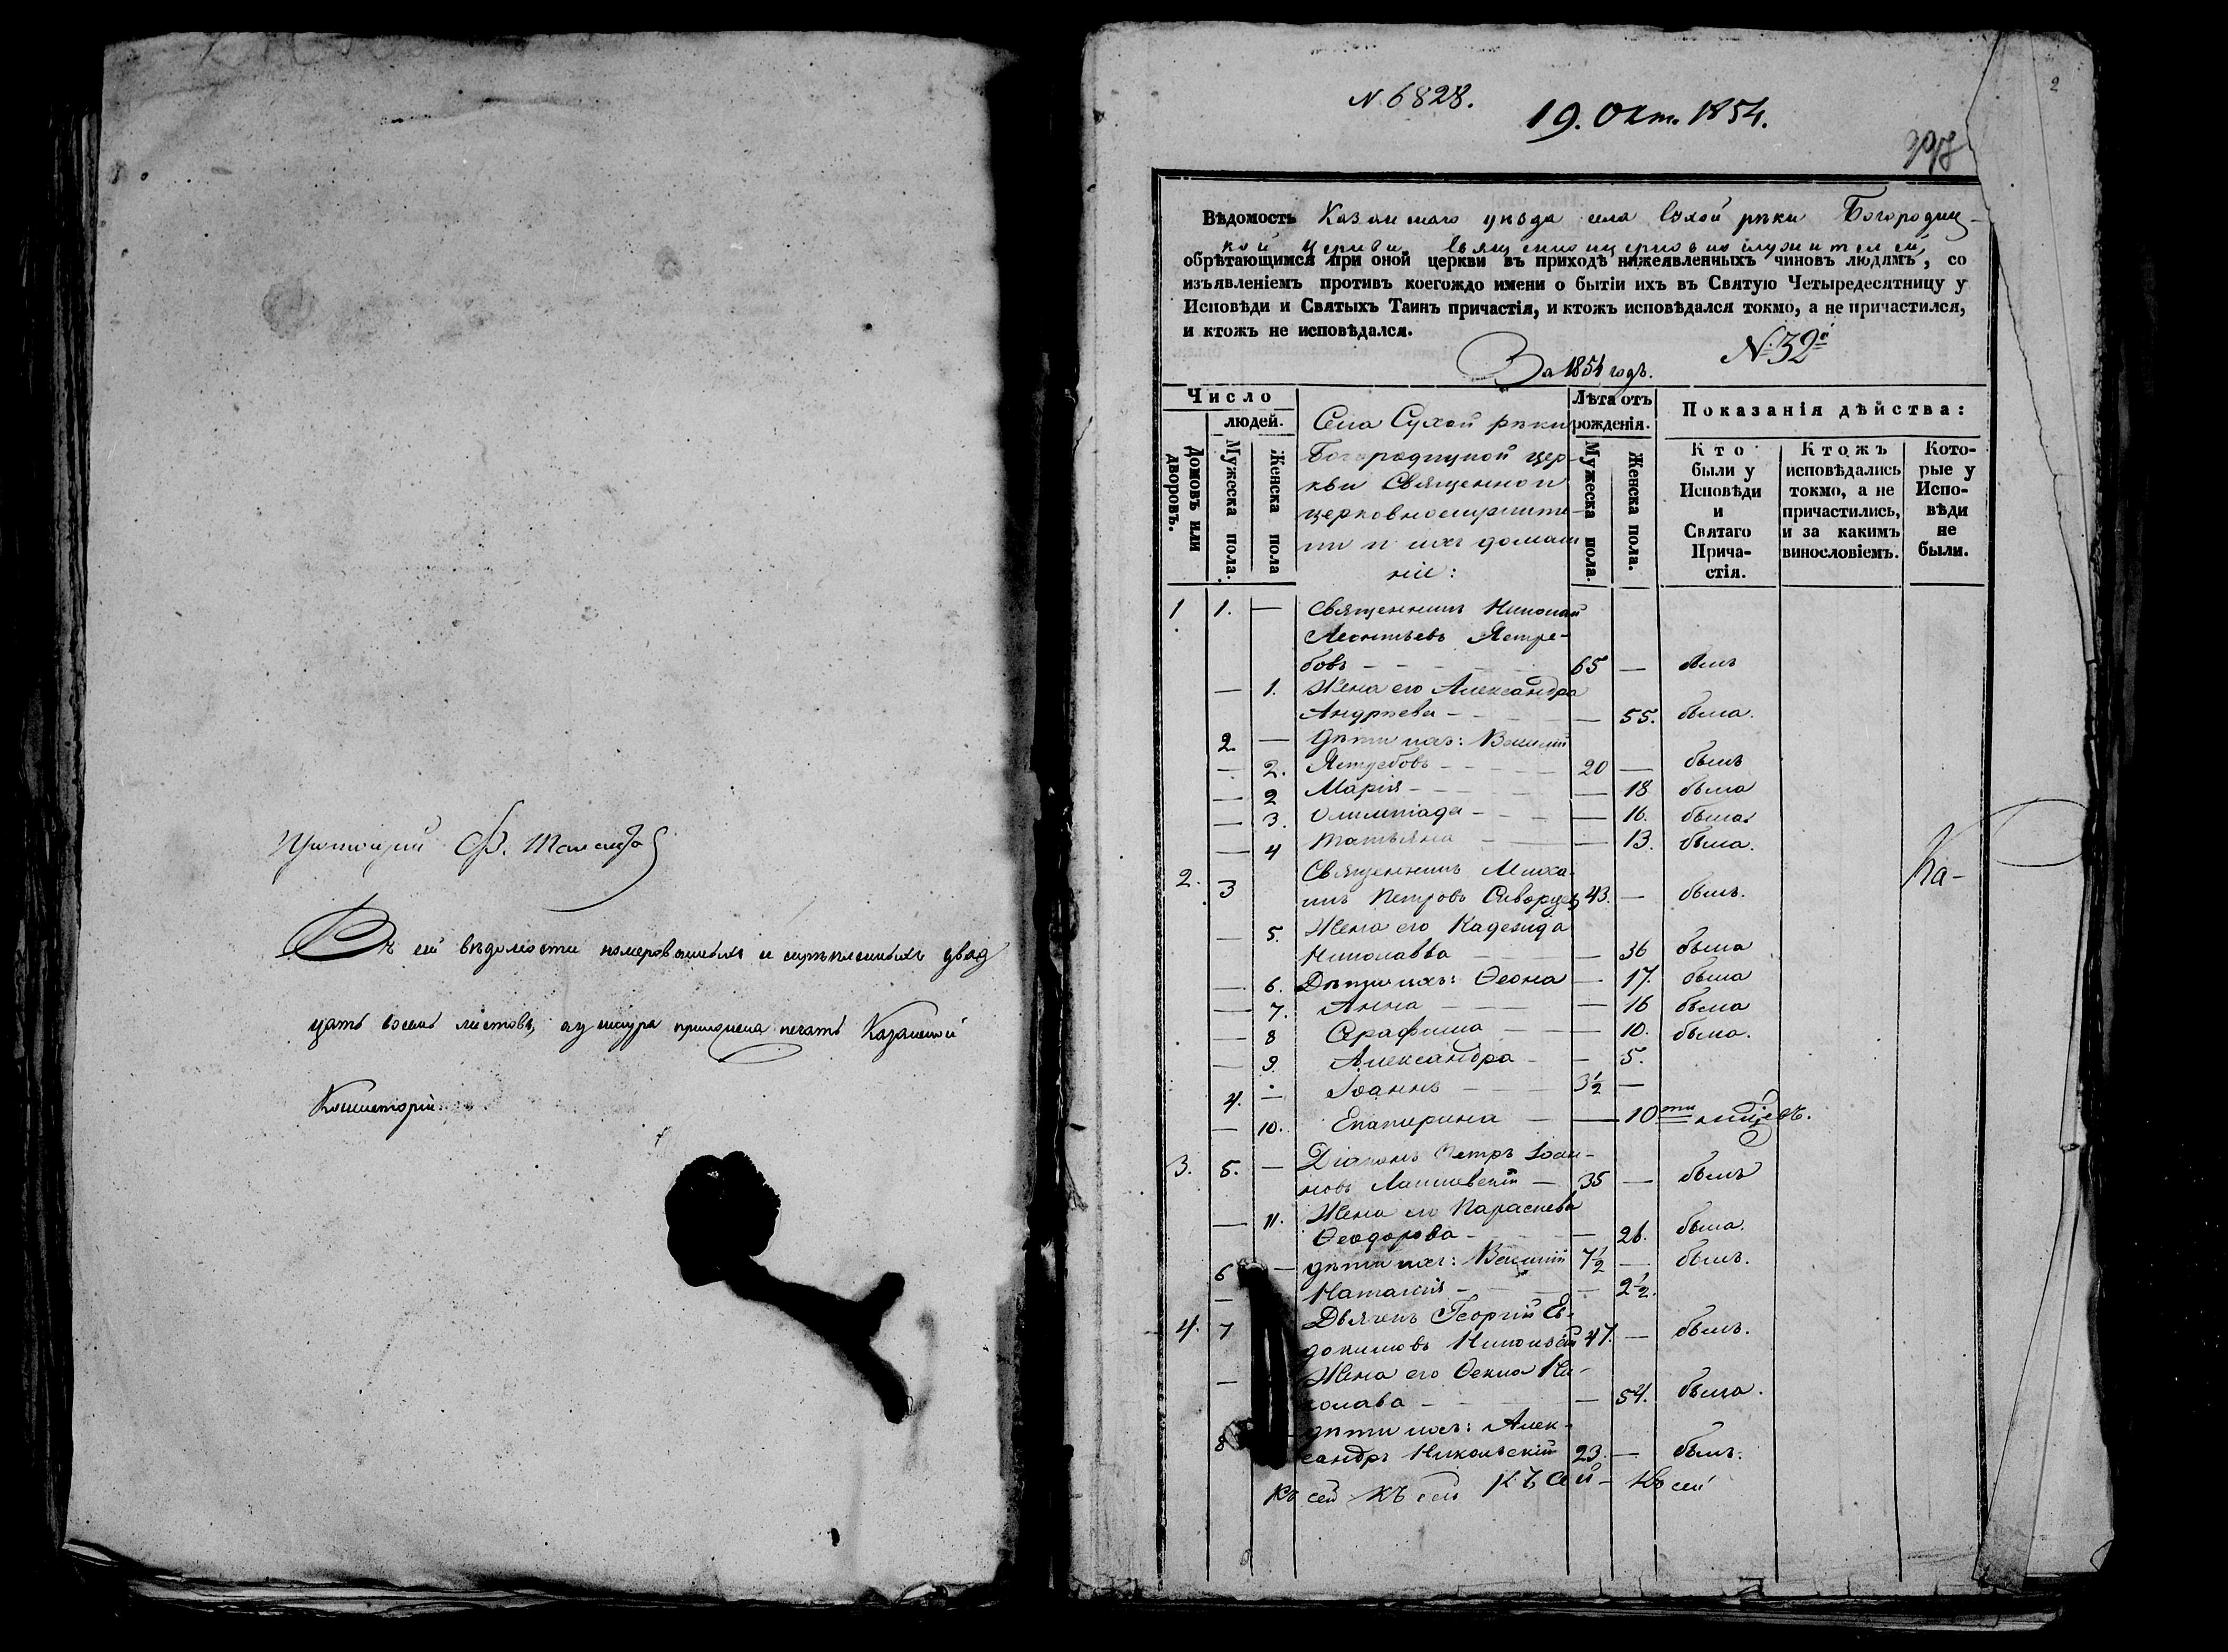 Въ сей вѣдомости номерованныхъ и скрѣпленныхъ двад
цать восемь листовъ, а у шнура приложена печать Казанской
Консисторіи.
2
N. 6828.
19. Окт. 1854.
Вѣдомость Казанскаго уѣзда села Сухой рѣки Богородиц-
кой церкви, Священноцерковнослужителей
обрѣтающимся при оной церкви въ приходѣ нижеявленныхъ чиновъ людямъ, со
изъявленіемъ противъ коегождо имени о бытіи ихъ въ Святую Четыредесятницу у
Исповѣди и Святыхъ Таинъ причастія, и ктожъ исповѣдался токмо, а не причастился,
и ктожъ не исповѣдался.
№ 32й
За 1854 годъ.
Число
людей.
Домовъ или дворовъ.
Мужеска пола.
Женска пола
Села Сухой рѣки
Богородицкой цер-
кви Священно и
церковнослужите-
ли и ихъ домаш
ніе:
Лѣта отъ
рожденія.
Мужеска пола.
Женска пола.
Показанія дѣйства:
Кто
были у
Исповѣди
и
Святаго
Прича-
стія.
Ктожъ
исповѣдались
токмо, а не
причастились,
и за какимъ
винословіемъ.
Кото-
рые у
Испо-
вѣди
не
были.
1 1. — Священникъ Николай
Леонтьевъ Ястре-
бовъ — 65 — былъ
— 1. Жена его Александра
Андрѣева — — 55. была.
2. — Дѣти ихъ: Василій
— 2. Ястребовъ — 20 — былъ
— 2 Марія — — 18 была
— 3. Олимпіада — — 16. была
— 4 Татьяна — — 13. была.
2. 3 Священникъ Миха-
илъ Петровъ Скворцов 43. — былъ.
Ка-
— 5. Жена его Надежда
Николавва — — 36 была
— 6. Дѣти ихъ: Ѳеона — 17. была
— 7. Анна — — 16 была
— 8 Серафима — — 10. была.
— 9. Александра — — 5.
4. — Іоаннъ — 3½ —
— 10. Екатерина — — 10ти мѣсяцъ.
3. 5. — Діаконъ Петръ Іоан-
новъ Лаишевскій — 35 — былъ
— 11. Жена его Параскева
Ѳеодорова — — 26. была.
6 — дѣти ихъ: Василій 7½ — былъ.
— Наталія — — 2½.
4. 7 Дьячекъ Георгій Ев-
докимовъ Никольскій 47. — былъ.
— Жена его Ѳекла Ни-
колава — — 54. была.
8 дѣти ихъ: Алек-
сандръ Никольскій 23. — былъ.
Къ сей Къ сей Къ сей — Къ сей